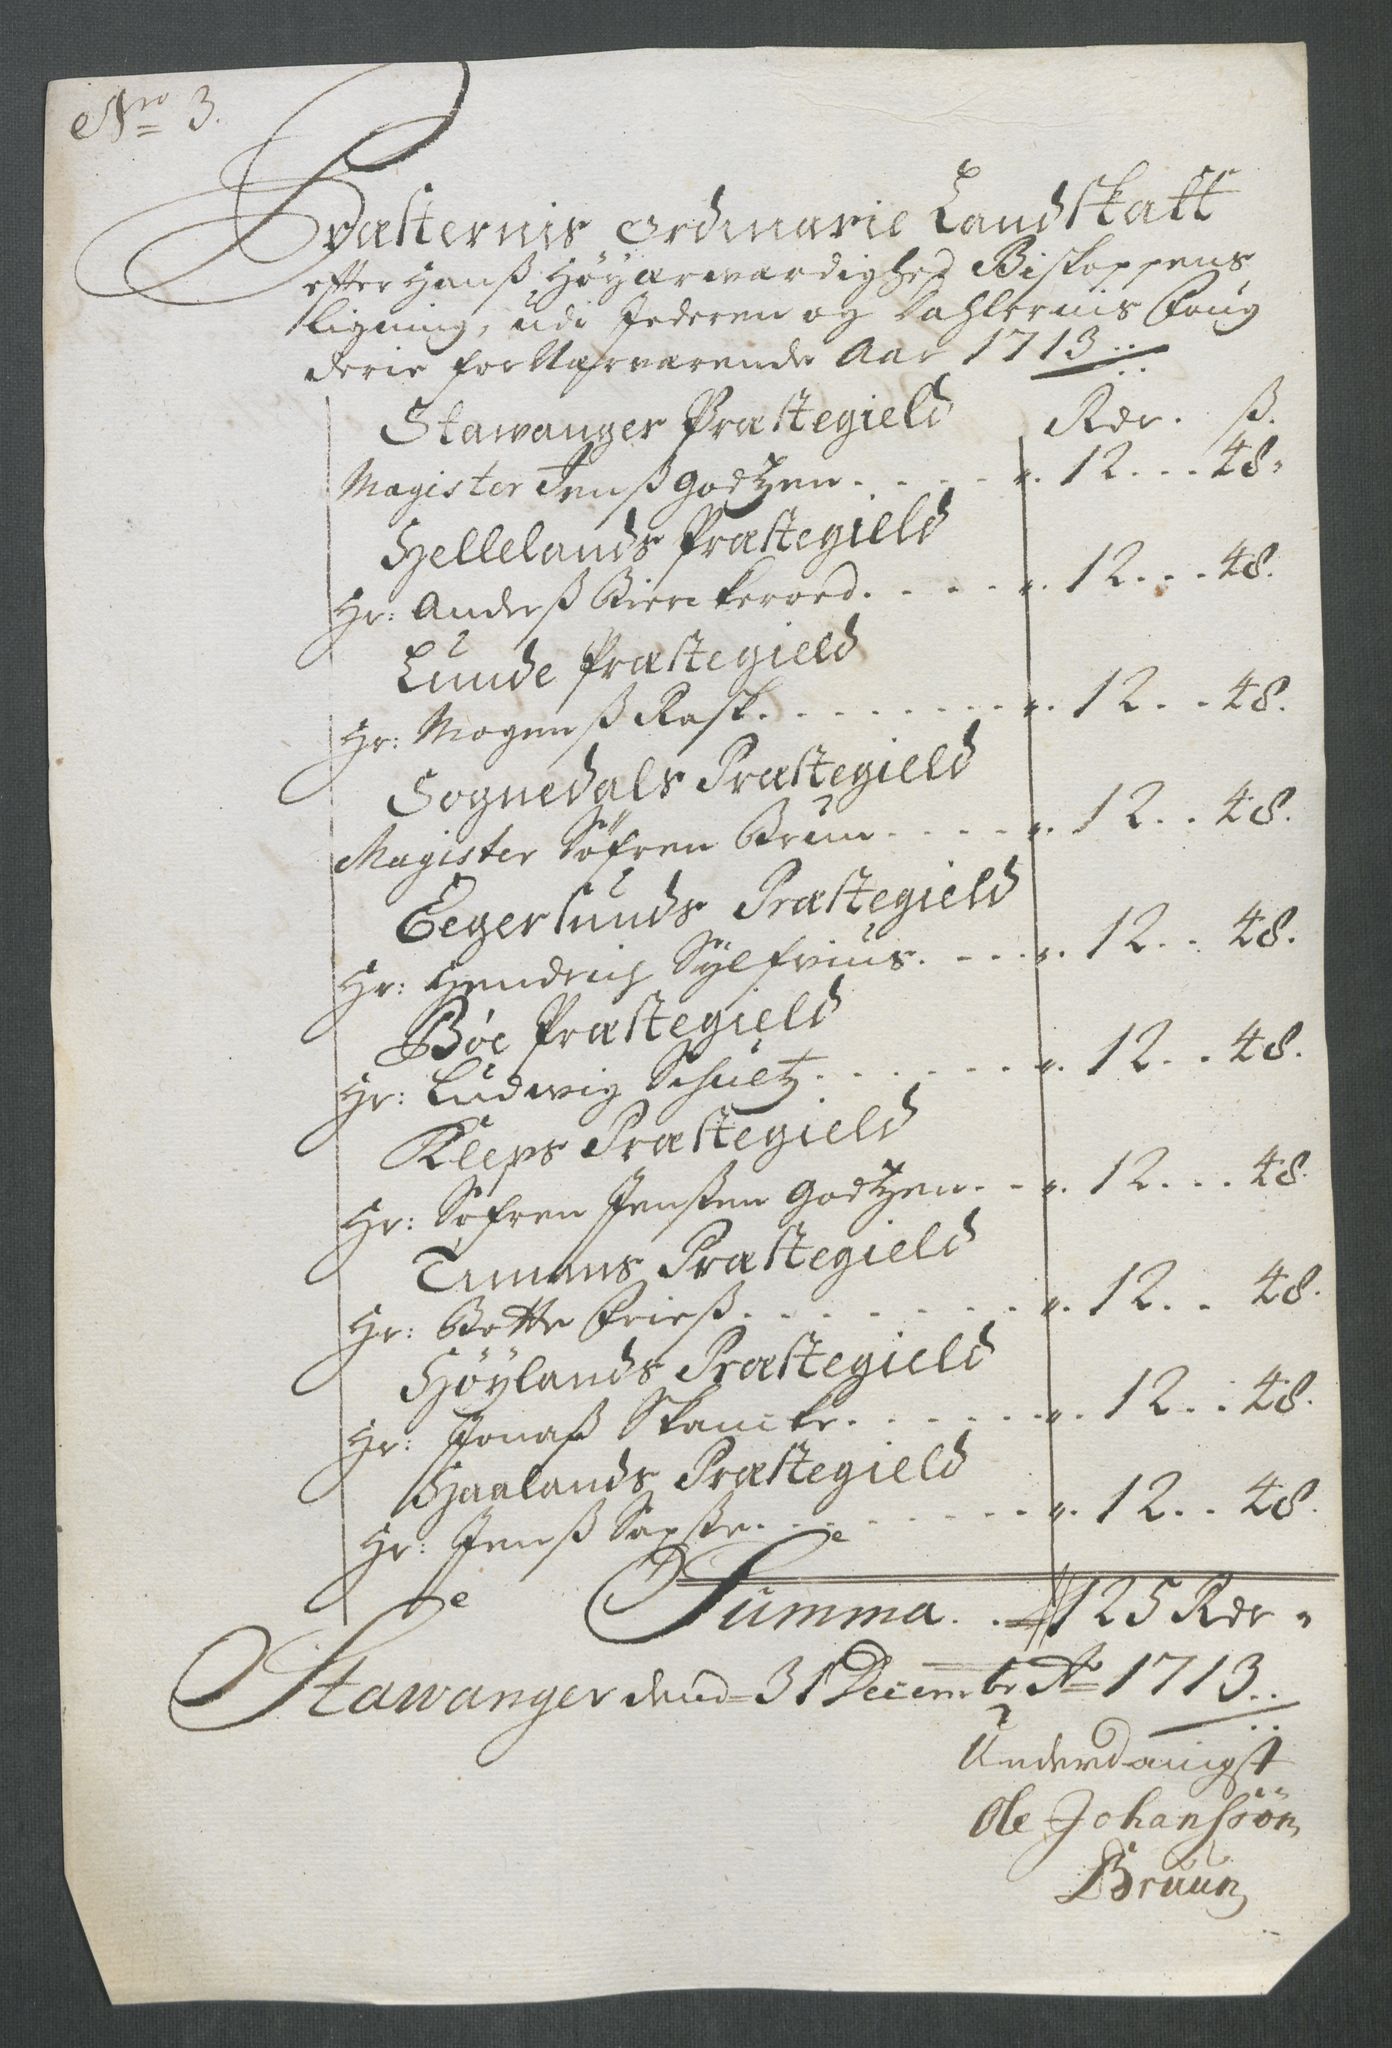 No 3.
Præsternis Ordinarie Landskatt
efter Hanß Höyærwærdighed Biskoppens
Ligning, udi Jederen og Dahlernis Foug
derie for Nærwærende Aar 1713
Stawanger Præstegield Rdr. ß.
Magister Jenß Godtzen 12 48
Hellelands Præstegield
Hr: Anderß Bierckeroed 12 48
Lunde Præstegield
Hr: Mogenß Rask 12 48
Sognedals Præstegield
Magister Söfren Brun 12 48
Eegersunds Præstegield
Hr: Hendrich Sylfvius 12 48
Böe Præstegield
Hr: Ludwig Schultz 12 48
Kleps Præstegield
Hr: Söfren Jenßen Godtzen 12 48
Timms Præstegield
Hr: Botte Frieß 12 48
Höylands Præstegield
Hr: Jonaß Skancke 12 48
Haalands Præstegield
Hr: Jenß 12 48
Summa 125 Rdr
Stawanger dend 31 Decembr Ao 1713
Underdanigst
Ole Johanssön
Bruun